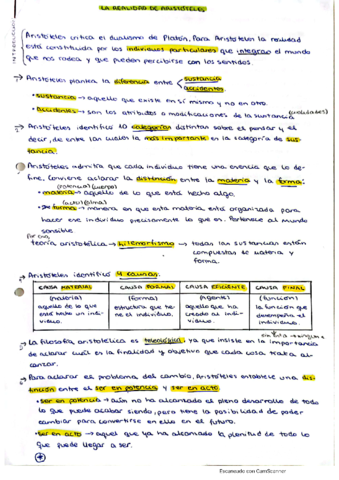 LA REALIDAD DE ARISTÓTELES
INTRODUCCIÓN
Aristóteles critica el dualismo de Platón. Para Aristóteles la realidad
está constituida por los individuos particulares que integran el mundo
que nos rodea y que pueden percibirse con los sentidos.
→ Aristóteles plantea la diferencia entre sustancia
accidentes
• sustancia → aquello que existe en sí mismo y no en otro.
• accidentes → son los atributos o modificaciones de la sustancia (cualidades)
→ Aristóteles identifica 10 categorías distintas sobre el pensar y el
decir, de entre las cuales la más importante es la categoría de sus-
tancia.
Aristóteles indica que cada individuo tiene una esencia que lo de-
fine. Conviene aclarar la distinción entre la materia y la forma:
(potencia) (cuerpo)
• materia → aquello de lo que está hecho algo.
(acto) (alma)
• forma → manera en que esta materia está organizada para
hacer ese individuo precisamente lo que es. Pertenece al mundo
sensible.
teoría aristotélica → hilemorfismo → todas las sustancias están
compuestas de materia y
forma.
→ Aristóteles identificó 4 causas.
CAUSA MATERIAL CAUSA FORMAL CAUSA EFICIENTE CAUSA FINAL
(materia) (forma) (Agente) (función)
aquello de lo que está hecho un indi-
viduo.
estructura que tie-
ne el individuo.
aquello que ha
creado al indi-
viduo.
función que
desempeña el
individuo.
→ La filosofía aristotélica es teleológica, ya que insiste en la importancia
de aclarar cuál es la finalidad y objetivo que cada cosa trata al-
canzar.
→ Para aclarar el problema del cambio, Aristóteles establece una dis-
tinción entre el ser en potencia y ser en acto.
• ser en potencia → aún no ha alcanzado el pleno desarrollo de todo
lo que puede acabar siendo, pero tiene la posibilidad de poder
cambiar para convertirse en ello en el futuro.
• ser en acto → aquel que ya ha alcanzado la plenitud de todo lo
que puede llegar a ser.
Escaneado con CamScanner